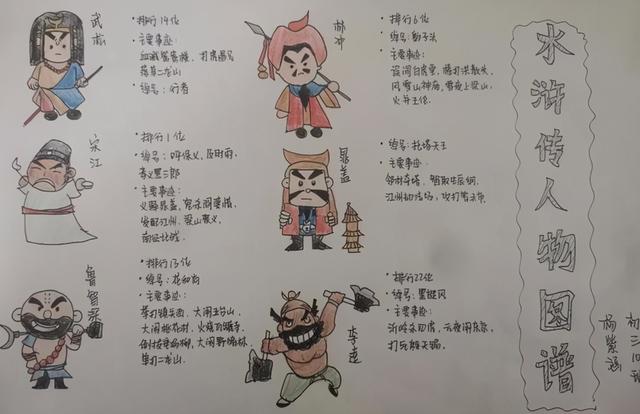 水浒传人物图谱
武松
·排行14位
·主要事迹：
血溅鸳鸯楼，打虎
落草二龙山
·绰号：行者
林冲
·排行6位
·绰号：豹子头
·主要事迹：
误闯白虎堂，棒打洪教头，
风雪山神庙，雪夜上梁山，
火并王伦。
宋江
·排行1位
·绰号：呼保义，及时雨，
孝义黑三郎
·主要事迹：
义释晁盖，怒杀阎婆惜，
发配江州，梁山聚义，
南征北战。
晁盖
·绰号：托塔天王
·主要事迹：
邻村夺塔，智取生辰纲，
江州劫法场，攻打曾头市
鲁智深
·排行13位
·绰号：花和尚
·主要事迹：
拳打镇关西，大闹五台山，
大闹桃花村，火烧瓦罐寺，
倒拔垂杨柳，大闹野猪林，
单打二龙山。
李逵
·排行22位
·绰号：黑旋风
·主要事迹：
沂岭杀四虎，元夜闹东京，
打死殷天锡。
初三
杨紫涵